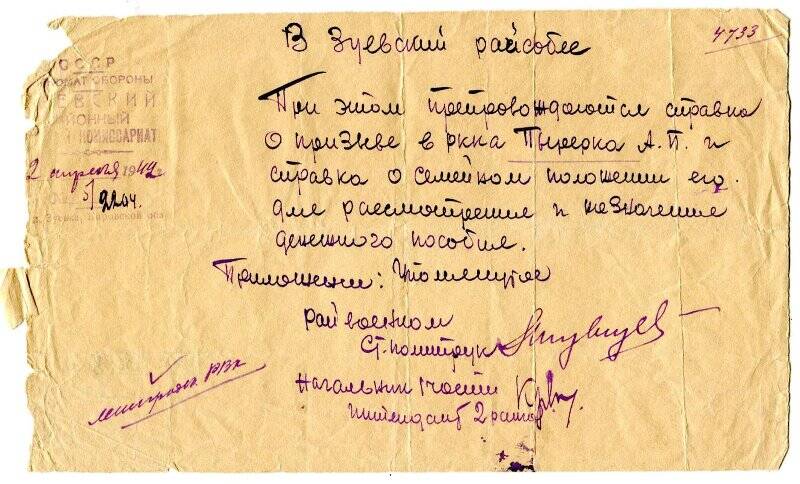 4733
В Зуевский райсобес
СССР
ОМАТ ОБОРОНЫ
ЕВСКИЙ
ЙОННЫЙ
КОМИССАРИАТ
2 апреля 1942 г.
5/2204.
г. Зуевка, Кировской обл
При этом препровождаются справка
о призыве в ркка Пырерка А.П. и
справка о семейном положении его.
для рассмотрения и назначения
денежного пособия.
Приложение: Упомянутое
Райвоенком
Ст. политрук
Начальник 1 части
Интендант 2 ранга